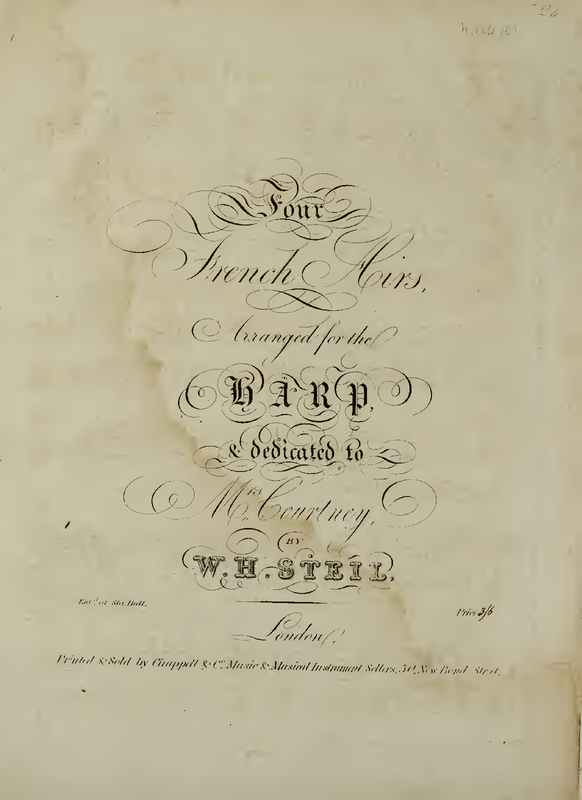 Four
French Airs,
Arranged for the
HARP,
& dedicated to
Mrs Courtney,
BY
W. H. STEIL.
Entd. at Sta. Hall.
Price 3/6
London
Printed & Sold by Chappell & Co. Music & Musical Instrument Sellers, 50, New Bond Street.